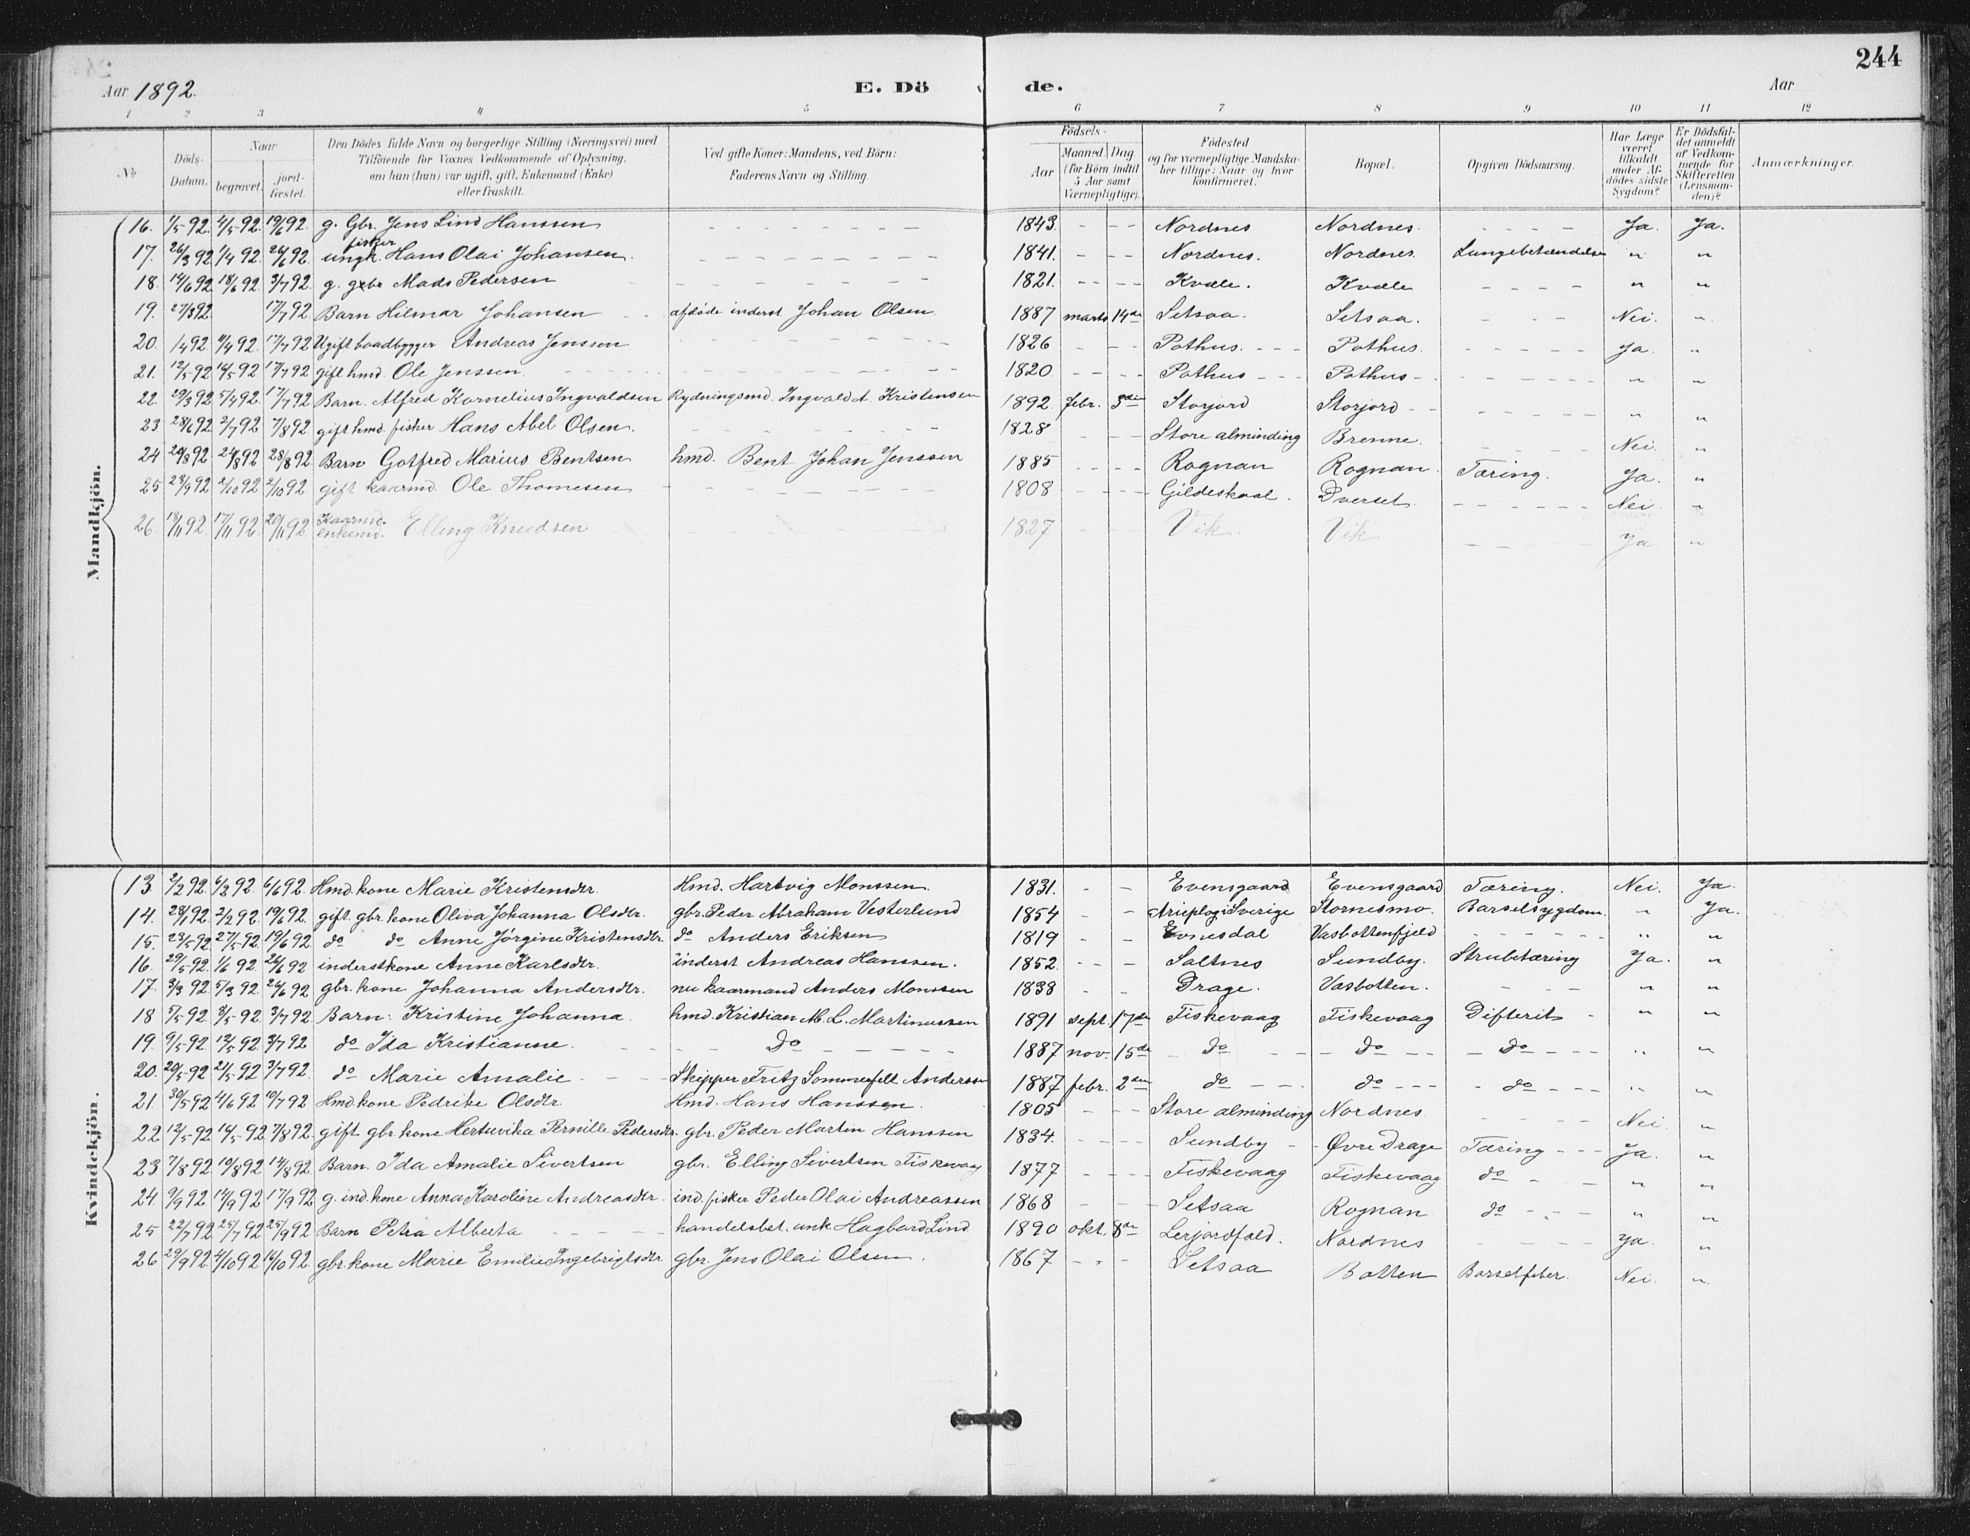 244
Aar 1892. E. Dö de. Aar
1 2 3 4 5 6 7 8 9 10 11 12
№ Döds-Datum. Naar begravet. jordfæstet. Den Dödes fulde Navn og borgerlige Stilling (Næringsvei) med Tilföiende for Voxnes Vedkommende af Oplysning, om han (hun) var ugift, gift, Enkemand (Enke) eller fraskilt. Ved gifte Koner: Mandens, ved Börn: Faderens Navn og Stilling Födsels- Aar Maaned Dag (for Børn indtil 5 Aar samt Værnepligtige). Födested og for værnepligtige Mandskaber tillige: Naar og hvor konfirmeret. Bopæl. Opgiven Dödsaarsag. Har Læge været tilkaldt under Afdödes sidste Sygdom? Er Dödsfaldet anmeldt af Vedkommende for Skifteretten (Lensmanden)? Anmærkninger.
Mandkjön.
16. 1/5 92 4/5 92. 19/6 92. g. Gbr. Jens Lind Hanssen 1843. Nordnes Nordnes. Ja. Ja.
17. 26/3 92 1/4 92. 26/6 92. ungk. fisker Hans Olai Johansen. 1841. Nordnes. Nordnes. Lungebetændelse " "
18. 14/6 92 18/6 92 3/7 92. g. gbr. Mads Pedersen 1821. Kvæle. Kvæle " "
19. 27/3 92. 17/7 92. Barn Hilmar Johansen afdöde inderst Johan Olsen 1887 marts 14de Setsaa. Setsaa. Nei. "
20. 1/4 92 8/4 92 17/7 92 Ugift baadbygger Andreas Jenssen 1826 Pothus. Pothus. Ja. "
21. 12/5 92 16/5 92 17/7 92 gift hmd. Ole Jenssen. 1820 Pothus Pothus " "
22. 29/3 92 5/4 92. 17/7 92 Barn. Alfred Kornelius Ingvaldsen Rydningsmd. Ingvald A. Kristensen 1892. febr. 3die Storjord Storjord " "
23 28/6 92 2/7 92 7/8 92 gift hmd. fisker Hans Abel Olsen. 1828 Store alminding Brenne. Nei. "
24 20/8 92 24/8 92 28/8 92 Barn Gotfred Marius Bentsen hmd. Bent Johan Jenssen 1885 Rognan Rognan. Tæring. Ja. "
25 23/9 92 2/10 92 2/10 92. gift kaarmd. Ole Thomesen 1808 Gildeskaal. Pverset. Nei. "
26. 13/11 92 17/11 92 20/11 92. Kaarmd. enkemd. Elling Knudsen 1827 Vik. Vik Ja. "
Kvindekjön.
13. 2/2 92. 6/2 92. 6/6 92. Hmd. kone Marie Kristensdtr. Hmd. Hartvig Monssen. 1831. Evensgaard Evensgaard Tæring. Nei. Ja.
14. 28/1 92. 2/2 92. 19/6 92. gift gbr. kone Oliva Johanna Olsdtr. gbr. Peder Abraham Vesterlund 1854 Arieplog Sverige Stornesmo. Barselsygdom " Ja.
15. 23/5 92 27/5 92 19/6 92 do do Anne Jörgine Kristensdtr. do Anders Eriksen 1819 Evnesdal Vasbottenfjeld " "
16. 29/5 92. 1/6 92. 26/6 92 inderstkone Anne Karlsdtr. inderst Andreas Hanssen. 1852. Saltnes Sundby. Strubetæring Ja. "
17. 3/3 92 5/3 92. 26/6 92 gbr. kone Johanna Andersdtr. nu kaarmand Anders Monssen 1838 Drage. Vasbotten. " "
18 5/5 92. 8/5 92. 3/7 92 Barn: Kristine Johanna hmd. Kristian M. L. Martinussen 1891 sept. 17de Fiskevaag Fiskevaag Difterit " "
19. 9/5 92 12/5 92. 3/7 92 do Ida Kristianne. Do 1887 nov. 15de do do do " "
20. 20/5 92 21/5 92. 3/7 92 do Marie Amalie Skipper Fritz Sommerfelt Anderssen 1887 febr. 2den do do do " "
21. 30/5 92 4/6 92 10/7 92 Hmd. kone Pedrike Olsdtr. Hmd. Hans Hanssen. 1805 Store alminding Nordnes. Nei. "
22 12/5 92 14/5 92 7/8 92. gift gbr. kone Hertuvika Pernille Pedersdtr. gbr. Peder Martin Hanssen 1834. Sundby Øvre Drage Tæring Ja. "
23 7/8 92. 10/8 92 14/8 92. Barn. Ida Amalie Sivertsen gbr. Elling Sivertsen Fiskevaag 1877 Fiskevaag Fiskevaag do " "
24. 9/9 92. 14/9 92 17/9 92 g. ind. kone Anna Karoline Andreasdtr. ind. fisker Peder Olai Andreassen 1868 Setsaa Rognan do " "
25 22/7 92 25/7 92 25/9 92 Barn Petra Alberta handelsbet. unk. Hagbard Lind 1890 okt. 8de Leijordfald. Nordnes Ja. "
26 29/9 92 4/10 92 16/10 92. gbr. kone Marie Emilie Ingebrigtsdtr. gbr. Jens Olai Olsen. 1867 Setsaa Botten Barselfeber. Nei. "